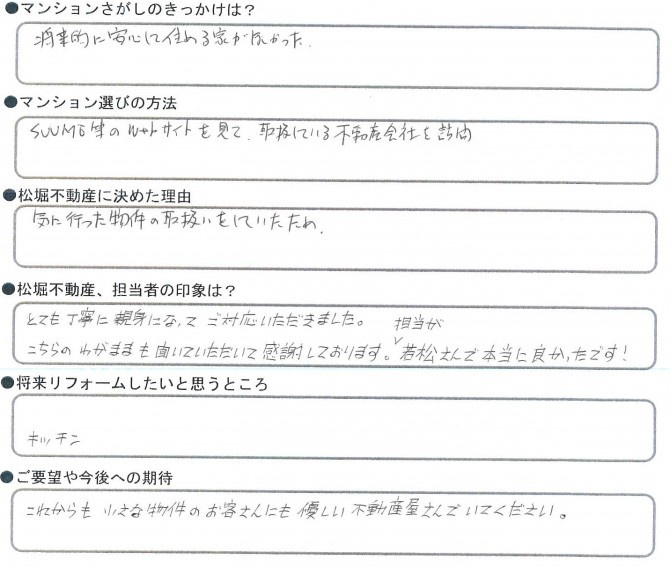 ●マンションさがしのきっかけは？
将来的に安心して住める家が良かった.
●マンション選びの方法
SUUMO等のWebサイトを見て、取扱している不動産会社を訪問
●松堀不動産に決めた理由
気に行った物件の取扱いをしていたため.
●松堀不動産、担当者の印象は？
とても丁寧に親身になってご対応いただきました。
こちらのわがままも聞いていただいて感謝しております。担当が若松さんで本当に良かったです！
●将来リフォームしたいと思うところ
キッチン
●ご要望や今後への期待
これからも小さな物件のお客さんにも優しい不動産屋さんでいてください。